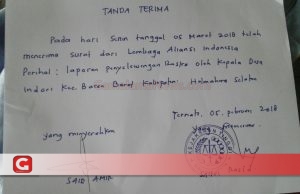 TANDA TERIMA
Pada hari Senin tanggal 05 Maret 2018 telah
menerima surat dari Lembaga Aliansi Indonesia
Perihal : laporan penyelewengan Raskin oleh Kepala Desa
Indari Kec. Bacan Barat Kabupaten. Halmahera Selatan
Ternate, 05. 2018
yang menyerahkan
Yang menerima
SAID AMIR
G